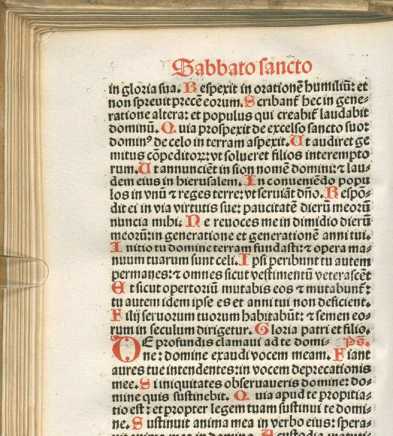 Sabbato sancto
in gloria sua. Respexit in orationē humiliū: et
non spreuit precē eorum. Scribant̄ hec in gene⸗
ratione altera: et populus qui creabit̄ laudabit
dominū. Quia prospexit de excelso sancto suo:
dominꝰ de celo in terram aspexit. Ut audiret ge
mitus cōpeditoꝝ: vt solueret filios interempto
rum. Ut annunciēt in sion nomē domini: ⁊ lau⸗
dem eius in hierusalem. In conueniēdo popu
los in vnū ⁊ reges terre: vt seruiāt dn̄o. Respō⸗
dit ei in via virtutis sue: paucitatē dierū meorū
nuncia mihi. Ne reuoces me in dimidio dierū
meorū: in generatione et generationē anni tui.
Initio tu domine terram fundasti: ⁊ opera ma⸗
nuum tuarum sunt celi. Ipsi peribunt tu autem
permanes: ⁊ omnes sicut vestimentū veterascēt
Et sicut opertoriū mutabis eos ⁊ mutabunt̄:
tu autem idem ipse es et anni tui non deficient.
Filij seruorum tuorum habitabūt: ⁊ semen eo⸗
rum in seculum dirigetur. Gloria patri et filio.
DE profundis clamaui ad te domi⸗ Ps.
ne: domine exaudi vocem meam. Fiant
aures tue intendentes: in vocem deprecationis
mee. Si iniquitates obseruaueris domine: do⸗
mine quis sustinebit. Quia apud te propitia⸗
tio est: et propter legem tuam sustinui te domi⸗
ne. Sustinuit anima mea in verbo eius: spera⸗